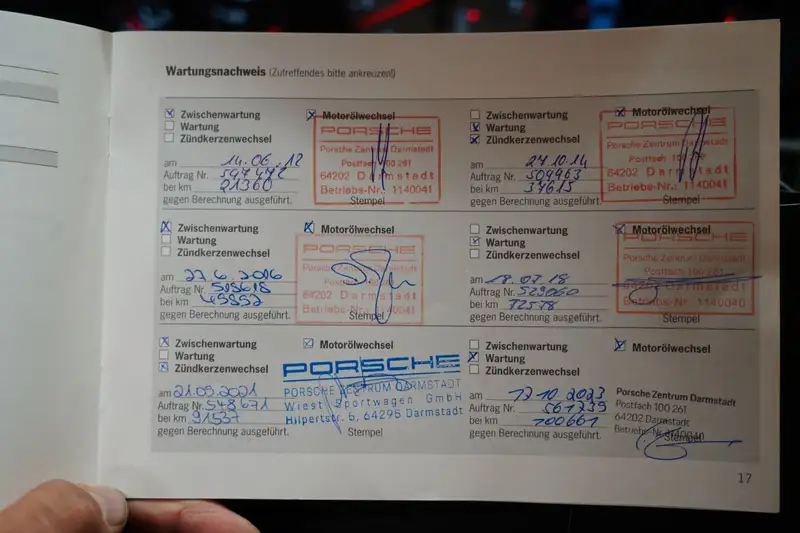 Wartungsnachweis (Zutreffendes bitte ankreuzen!)
Zwischenwartung Motorölwechsel
Wartung
Zündkerzenwechsel
am 14.06.12
Auftrag Nr. 597472
bei km 21360
gegen Berechnung ausgeführt. Stempel
PORSCHE
Porsche Zentrum Darmstadt
Postfach 100 261
64202 Darmstadt
Betriebs-Nr. 1140041
Zwischenwartung Motorölwechsel
Wartung
Zündkerzenwechsel
am 27.10.14
Auftrag Nr. 504963
bei km 37615
gegen Berechnung ausgeführt. Stempel
PORSCHE
Porsche Zentrum Darmstadt
Postfach 100
64202 Darmstadt
Betriebs-Nr. 1140041
Zwischenwartung Motorölwechsel
Wartung
Zündkerzenwechsel
am 27.6.2016
Auftrag Nr. 515618
bei km 45852
gegen Berechnung ausgeführt. Stempel
PORSCHE
Porsche Zentrum Darmstadt
Postfach 100 261
64202 Darmstadt
Betriebs-Nr. 1140041
Zwischenwartung Motorölwechsel
Wartung
Zündkerzenwechsel
am 18.07.18
Auftrag Nr. 529060
bei km 72578
gegen Berechnung ausgeführt. Stempel
PORSCHE
Porsche Zentrum Darmstadt
Postfach 100 261
64202 Darmstadt
Betriebs-Nr. 1140041
Zwischenwartung Motorölwechsel
Wartung
Zündkerzenwechsel
am 21.09.2021
Auftrag Nr. 548671
bei km 91537
gegen Berechnung ausgeführt. Stempel
PORSCHE
PORSCHE ZENTRUM DARMSTADT
Wiest Sportwagen GmbH
Hilpertstr. 6, 64295 Darmstadt
Zwischenwartung Motorölwechsel
Wartung
Zündkerzenwechsel
am 17.10.2023
Auftrag Nr. 561239
bei km 100661
gegen Berechnung ausgeführt. Stempel
Porsche Zentrum Darmstadt
Postfach 100 261
64202 Darmstadt
17